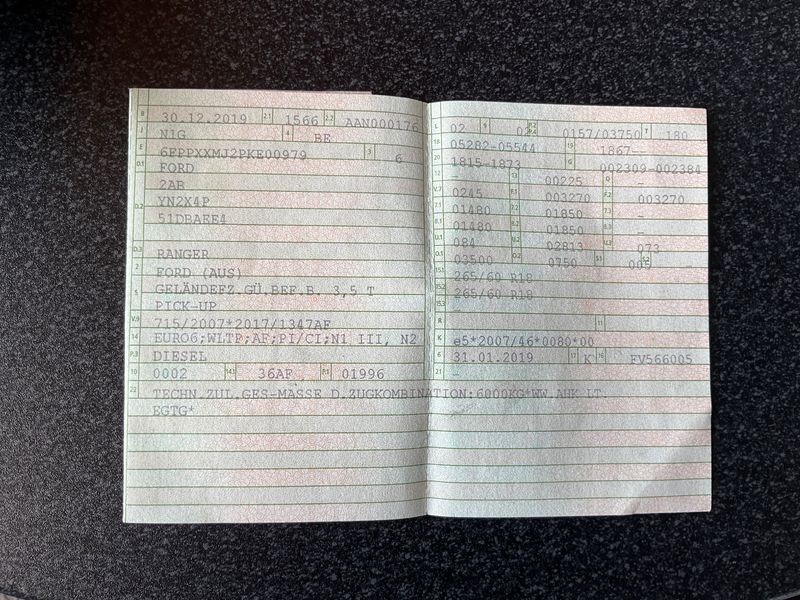 B 30.12.2019 2.1 1566 2.2 AAN000176
J N1G 4 BE
E 6FPPXXMJ2PKE00979 3 6
D.1 FORD
2AB
D.2 YN2X4P
51DBAEE4
D.3 RANGER
2 FORD (AUS)
5 GELÄNDEFZ.GÜ.BEF.B. 3,5 T
PICK-UP
V.9 715/2007*2017/1347AF
14 EURO6;WLTP;AF;PI/CI;N1 III, N2
P.3 DIESEL
10 0002 14.1 36AF P.1 01996
22 TECHN.ZUL.GES-MASSE D.ZUGKOMBINATION:6000KG*WW.AHK LT.
EGTG*
L 02 9 02 P.2 P.4 0157/03750 T 180
18 05282-05544 19 1867--
20 1815-1873 G 002309-002384
12 - 13 00225 Q -
V.7 0245 F.1 003270 F.2 003270
7.1 01480 7.2 01850 7.3 -
8.1 01480 8.2 01850 8.3 -
U.1 084 U.2 02813 U.3 073
O.1 03500 O.2 0750 S.1 005 S.2 -
15.1 265/60 R18
15.2 265/60 R18
15.3 -
R - 11 -
K e5*2007/46*0080*00
6 31.01.2019 17 K 16 FV566005
21 -